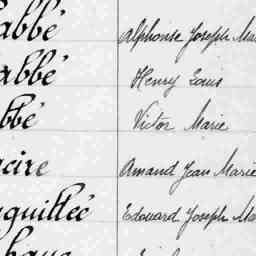 abbé Alphonse Joseph Ma
abbé Henry Louis
bbé Victor Marie
cire Amand Jean Marie
guillec Edouard Joseph Ma